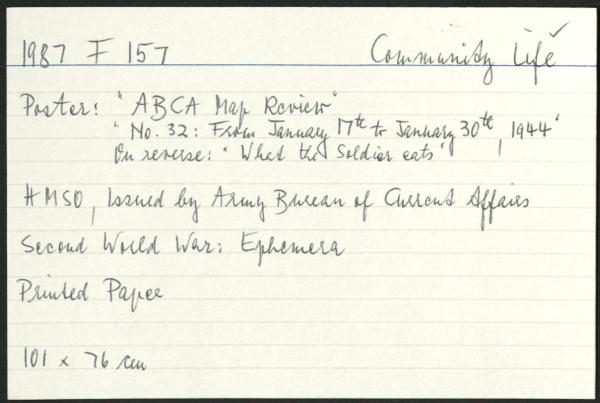 1987 F 157 Community Life ✓
Poster: "ABCA Map Review"
"No. 32: From January 17th to January 30th, 1944"
On reverse: "What the Soldier eats"
HMSO, Issued by Army Bureau of Current Affairs
Second World War: Ephemera
Printed Paper
101 x 76 cm